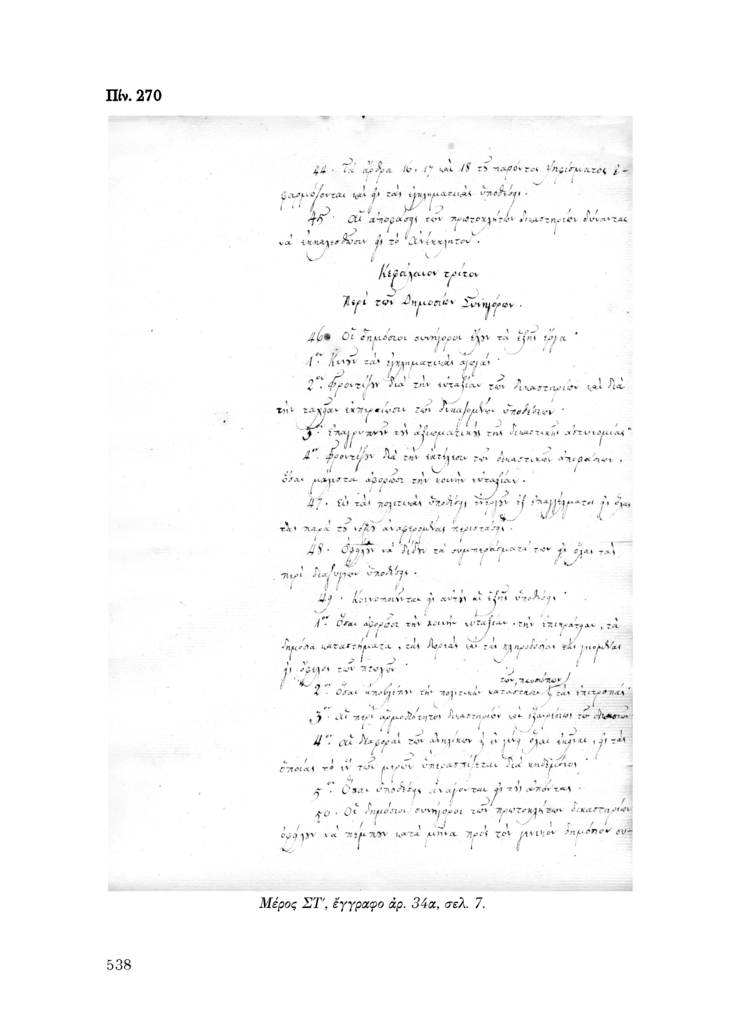 Πίν. 270
44. Τὰ ἄρθρα 16, 17 καὶ 18 τοῦ παρόντος Ψηφίσματος ἐ-
φαρμόζονται καὶ εἰς τὰς ἐγκληματικὰς ὑποθέσεις.
45. Αἱ ἀποφάσεις τῶν πρωτοκλήτων δικαστηρίων δύνανται
νὰ ἐκκαλεσθῶσιν εἰς τὸ Ἀνέκκλητον.
Κεφάλαιον τρίτον
Περὶ τῶν Δημοσίων Συνηγόρων.
46. Οἱ δημόσιοι συνήγοροι ἔχουν τὰ ἑξῆς ἔργα·
1ον Κινοῦν τὰς ἐγκληματικὰς ἀγωγάς·
2ον Φροντίζουν διὰ τὴν εὐταξίαν τῶν δικαστηρίων καὶ διὰ
τὴν ταχεῖαν ἐκπεραίωσιν τῶν δικαζομένων ὑποθέσεων·
3ον Ἐπαγρυπνοῦν τοὺς ἀξιωματικοὺς τῆς δικαστικῆς ἀστυνομίας·
4ον Φροντίζουν διὰ τὴν ἐκτέλεσιν τῶν δικαστικῶν ἀποφάσεων,
ὅσαι μάλιστα ἀφορῶσι τὴν κοινὴν εὐταξίαν.
47. Εἰς τὰς πολιτικὰς ὑποθέσεις ἐνεργοῦν ἐξ ἐπαγγέλματος εἰς ὅλας
τὰς παρὰ τοῦ νόμου ἀναφερομένας περιστάσεις.
48. Ὀφείλουν νὰ δίδουν τὰ συμπεράσματά των εἰς ὅλας τὰς
περὶ διαζυγίων ὑποθέσεις.
49. Κοινοποιοῦνται εἰς αὐτοὺς αἱ ἑξῆς ὑποθέσεις·
1ον Ὅσαι ἀφορῶσι τὴν κοινὴν εὐταξίαν, τὴν ἐπικράτειαν, τὰ
δημόσια καταστήματα, τὰς δωρεὰς καὶ τὰς κληροδοσίας τὰς γινομένας
εἰς ὄφελος τῶν πτωχῶν·
τῶν προσώπων
2ον Ὅσαι ἀποβλέπουν τὴν πολιτικὴν κατάστασιν τὰς ἐπιτροπάς·
3ον Αἱ περὶ ἁρμοδιότητος δικαστηρίων καὶ ἐξαιρέσεως τῶν δικαστῶν
4ον Αἱ διαφοραὶ τῶν ἀνηλίκων καὶ ἐν γένει ὅλαι ἐκεῖναι, εἰς τὰς
ὁποίας τὸ ἓν τῶν μερῶν ὑπερασπίζεται διὰ κηδεμόνος·
5ον Ὅσαι ὑποθέσεις ἀνάγονται εἰς τοὺς ἀπόντας.
50. Οἱ δημόσιοι συνήγοροι τῶν πρωτοκλήτων δικαστηρίων
ὀφείλουν νὰ πέμπουν κατὰ μῆνα πρὸς τὸν γενικὸν δημόσιον συ-
Μέρος ΣΤ', ἔγγραφο ἀρ. 34α, σελ. 7.
538